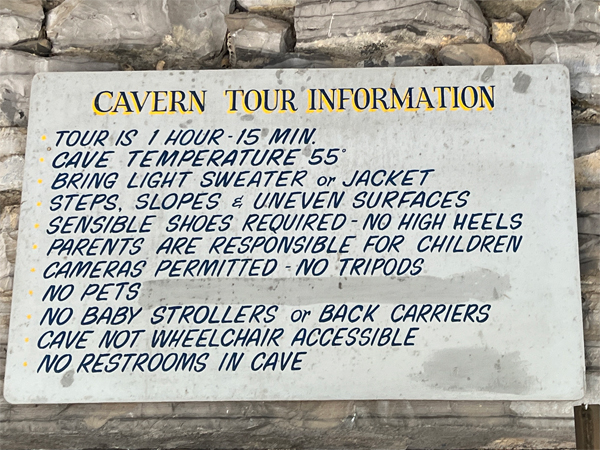 CAVERN TOUR INFORMATION
TOUR IS 1 HOUR-15 MIN.
CAVE TEMPERATURE 55°
BRING LIGHT SWEATER or JACKET
STEPS, SLOPES & UNEVEN SURFACES
SENSIBLE SHOES REQUIRED-NO HIGH HEELS
PARENTS ARE RESPONSIBLE FOR CHILDREN
CAMERAS PERMITTED - NO TRIPODS
NO PETS
NO BABY STROLLERS or BACK CARRIERS
CAVE NOT WHEELCHAIR ACCESSIBLE
NO RESTROOMS IN CAVE